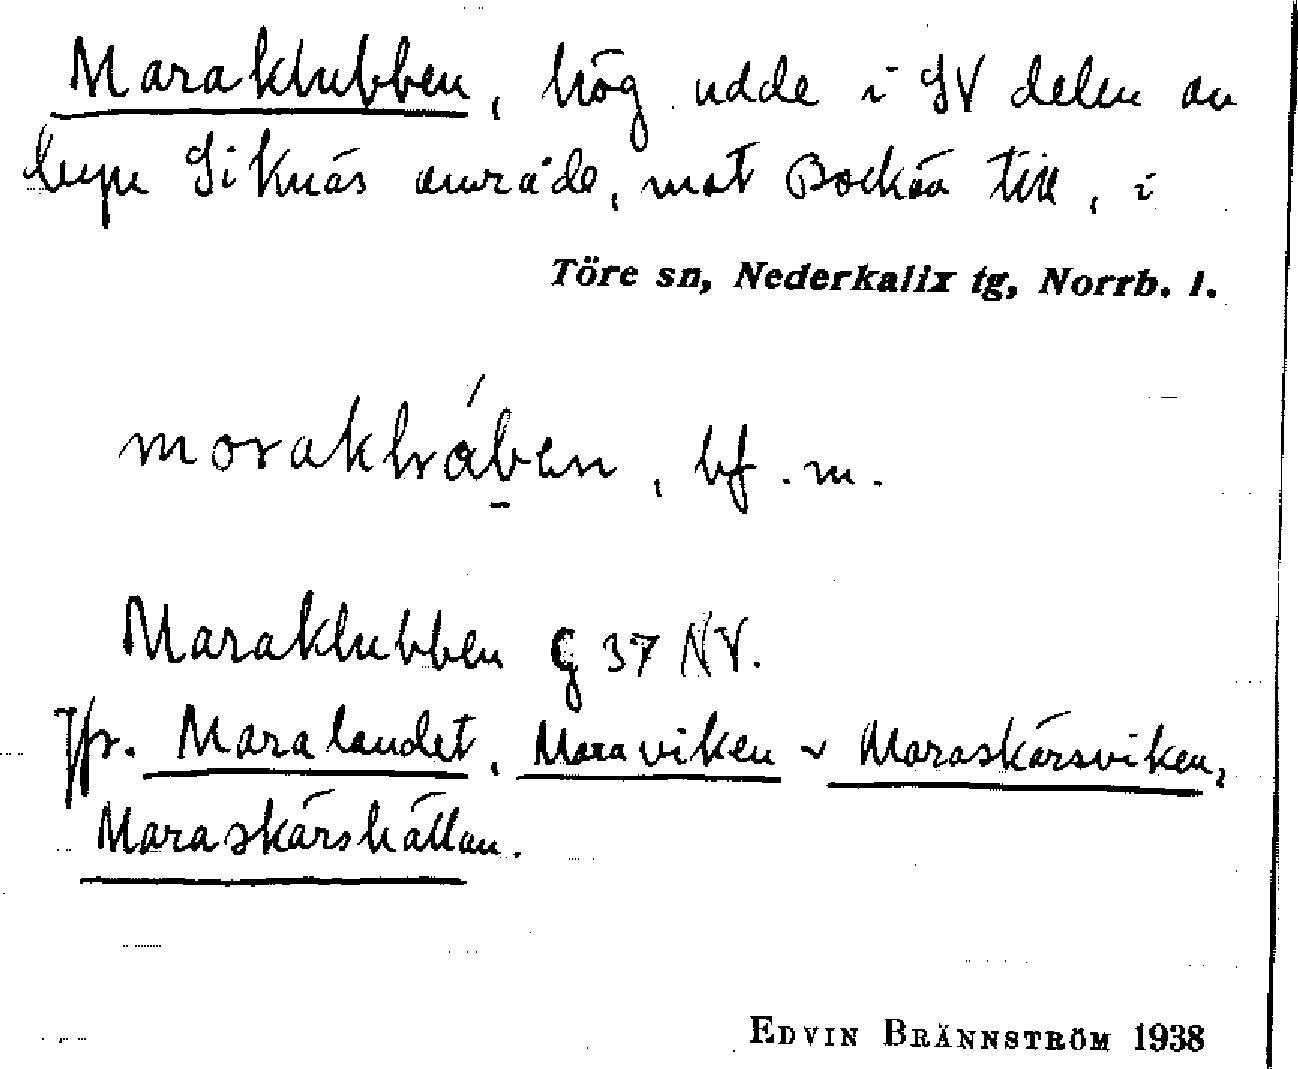 Maraklubben, hög udde i SV delen av
byn Siknäs område, mot Bockön till, i
Töre sn, Nederkalix tg, Norrb. l.
bf. m.
Maraklubben G 37 NV.
Jfr. Maralandet, Maraviken o Maraskärsviken,
Maraskärshällan.
EDVIN BRÄNNSTRÖM 1938